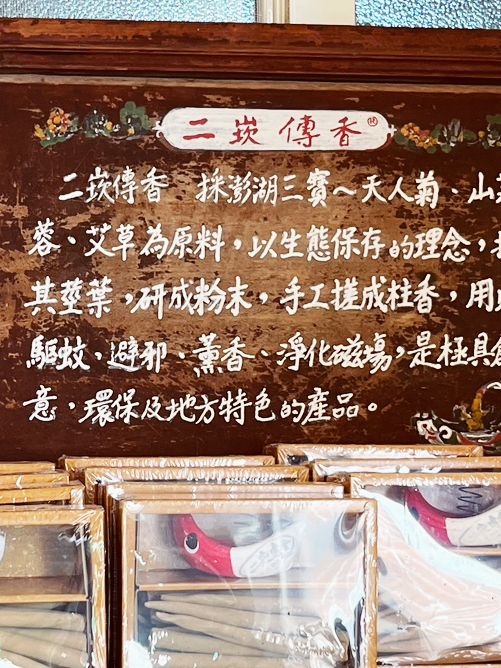 二崁傳香
二崁傳香 採澎湖三寶～天人菊、山
蓉、艾草為原料，以生態保存的理念，
其莖葉，研成粉末，手工搓成柱香，用
驅蚊、避邪、薰香、淨化磁場，是極具創
意，環保及地方特色的產品。